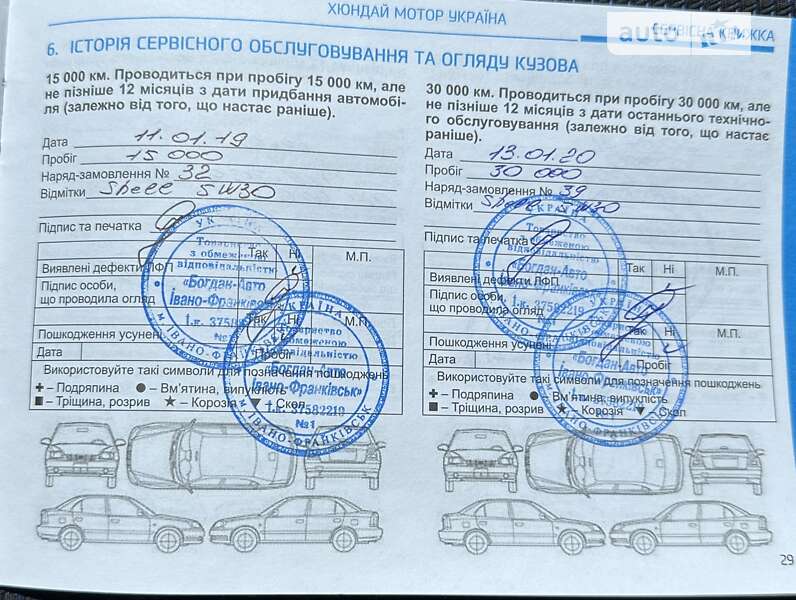 ХЮНДАЙ МОТОР УКРАЇНА
СЕРВІСНА КНИЖКА
6. ІСТОРІЯ СЕРВІСНОГО ОБСЛУГОВУВАННЯ ТА ОГЛЯДУ КУЗОВА
15 000 км. Проводиться при пробігу 15 000 км, але
не пізніше 12 місяців з дати придбання автомобі-
ля (залежно від того, що настає раніше).
Дата 11.01.19
Пробіг 15 000
Наряд-замовлення № 32
Відмітки Shell 5W30
Підпис та печатка
Так Ні М.П.
Виявлені дефекти ЛФП
Підпис особи,
що проводила огляд
Так Ні М.П.
Пошкодження усунені
Дата Пробіг
Використовуйте такі символи для позначення пошкоджень
+ - Подряпина ● - Вм'ятина, випуклість
■ - Тріщина, розрив ★ - Корозія ▼ - Скол
УКРАЇНА
Товариство
з обмеженою
відповідальністю
«Богдан-Авто
Івано-Франківськ»
і.к. 37582219
№1
м. ІВАНО-ФРАНКІВСЬК
30 000 км. Проводиться при пробігу 30 000 км, але
не пізніше 12 місяців з дати останнього технічно-
го обслуговування (залежно від того, що настає
раніше).
Дата 13.01.20
Пробіг 30 000
Наряд-замовлення № 39
Відмітки Shell 5W30
Підпис та печатка
Так Ні М.П.
Виявлені дефекти ЛФП
Підпис особи,
що проводила огляд
Так Ні М.П.
Пошкодження усунені
Дата Пробіг
Використовуйте такі символи для позначення пошкоджень
+ - Подряпина ● - Вм'ятина, випуклість
■ - Тріщина, розрив ★ - Корозія ▼ - Скол
29